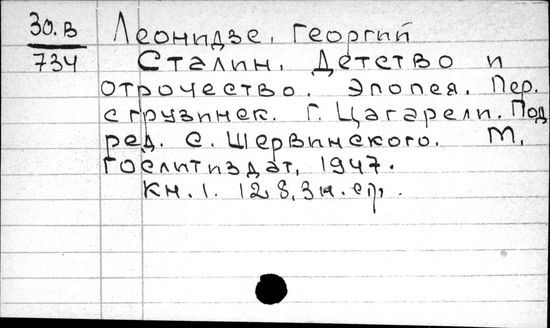 30.В
734
Леонидзе, Георгий
Сталин. Детство и
отрочество. Эпопея. Пер.
с грузинск. Г. Цагарели. Под
ред. С. Шервинского. М,
Гослитиздат, 1947.
Кн. 1. 128, 3 н. стр.